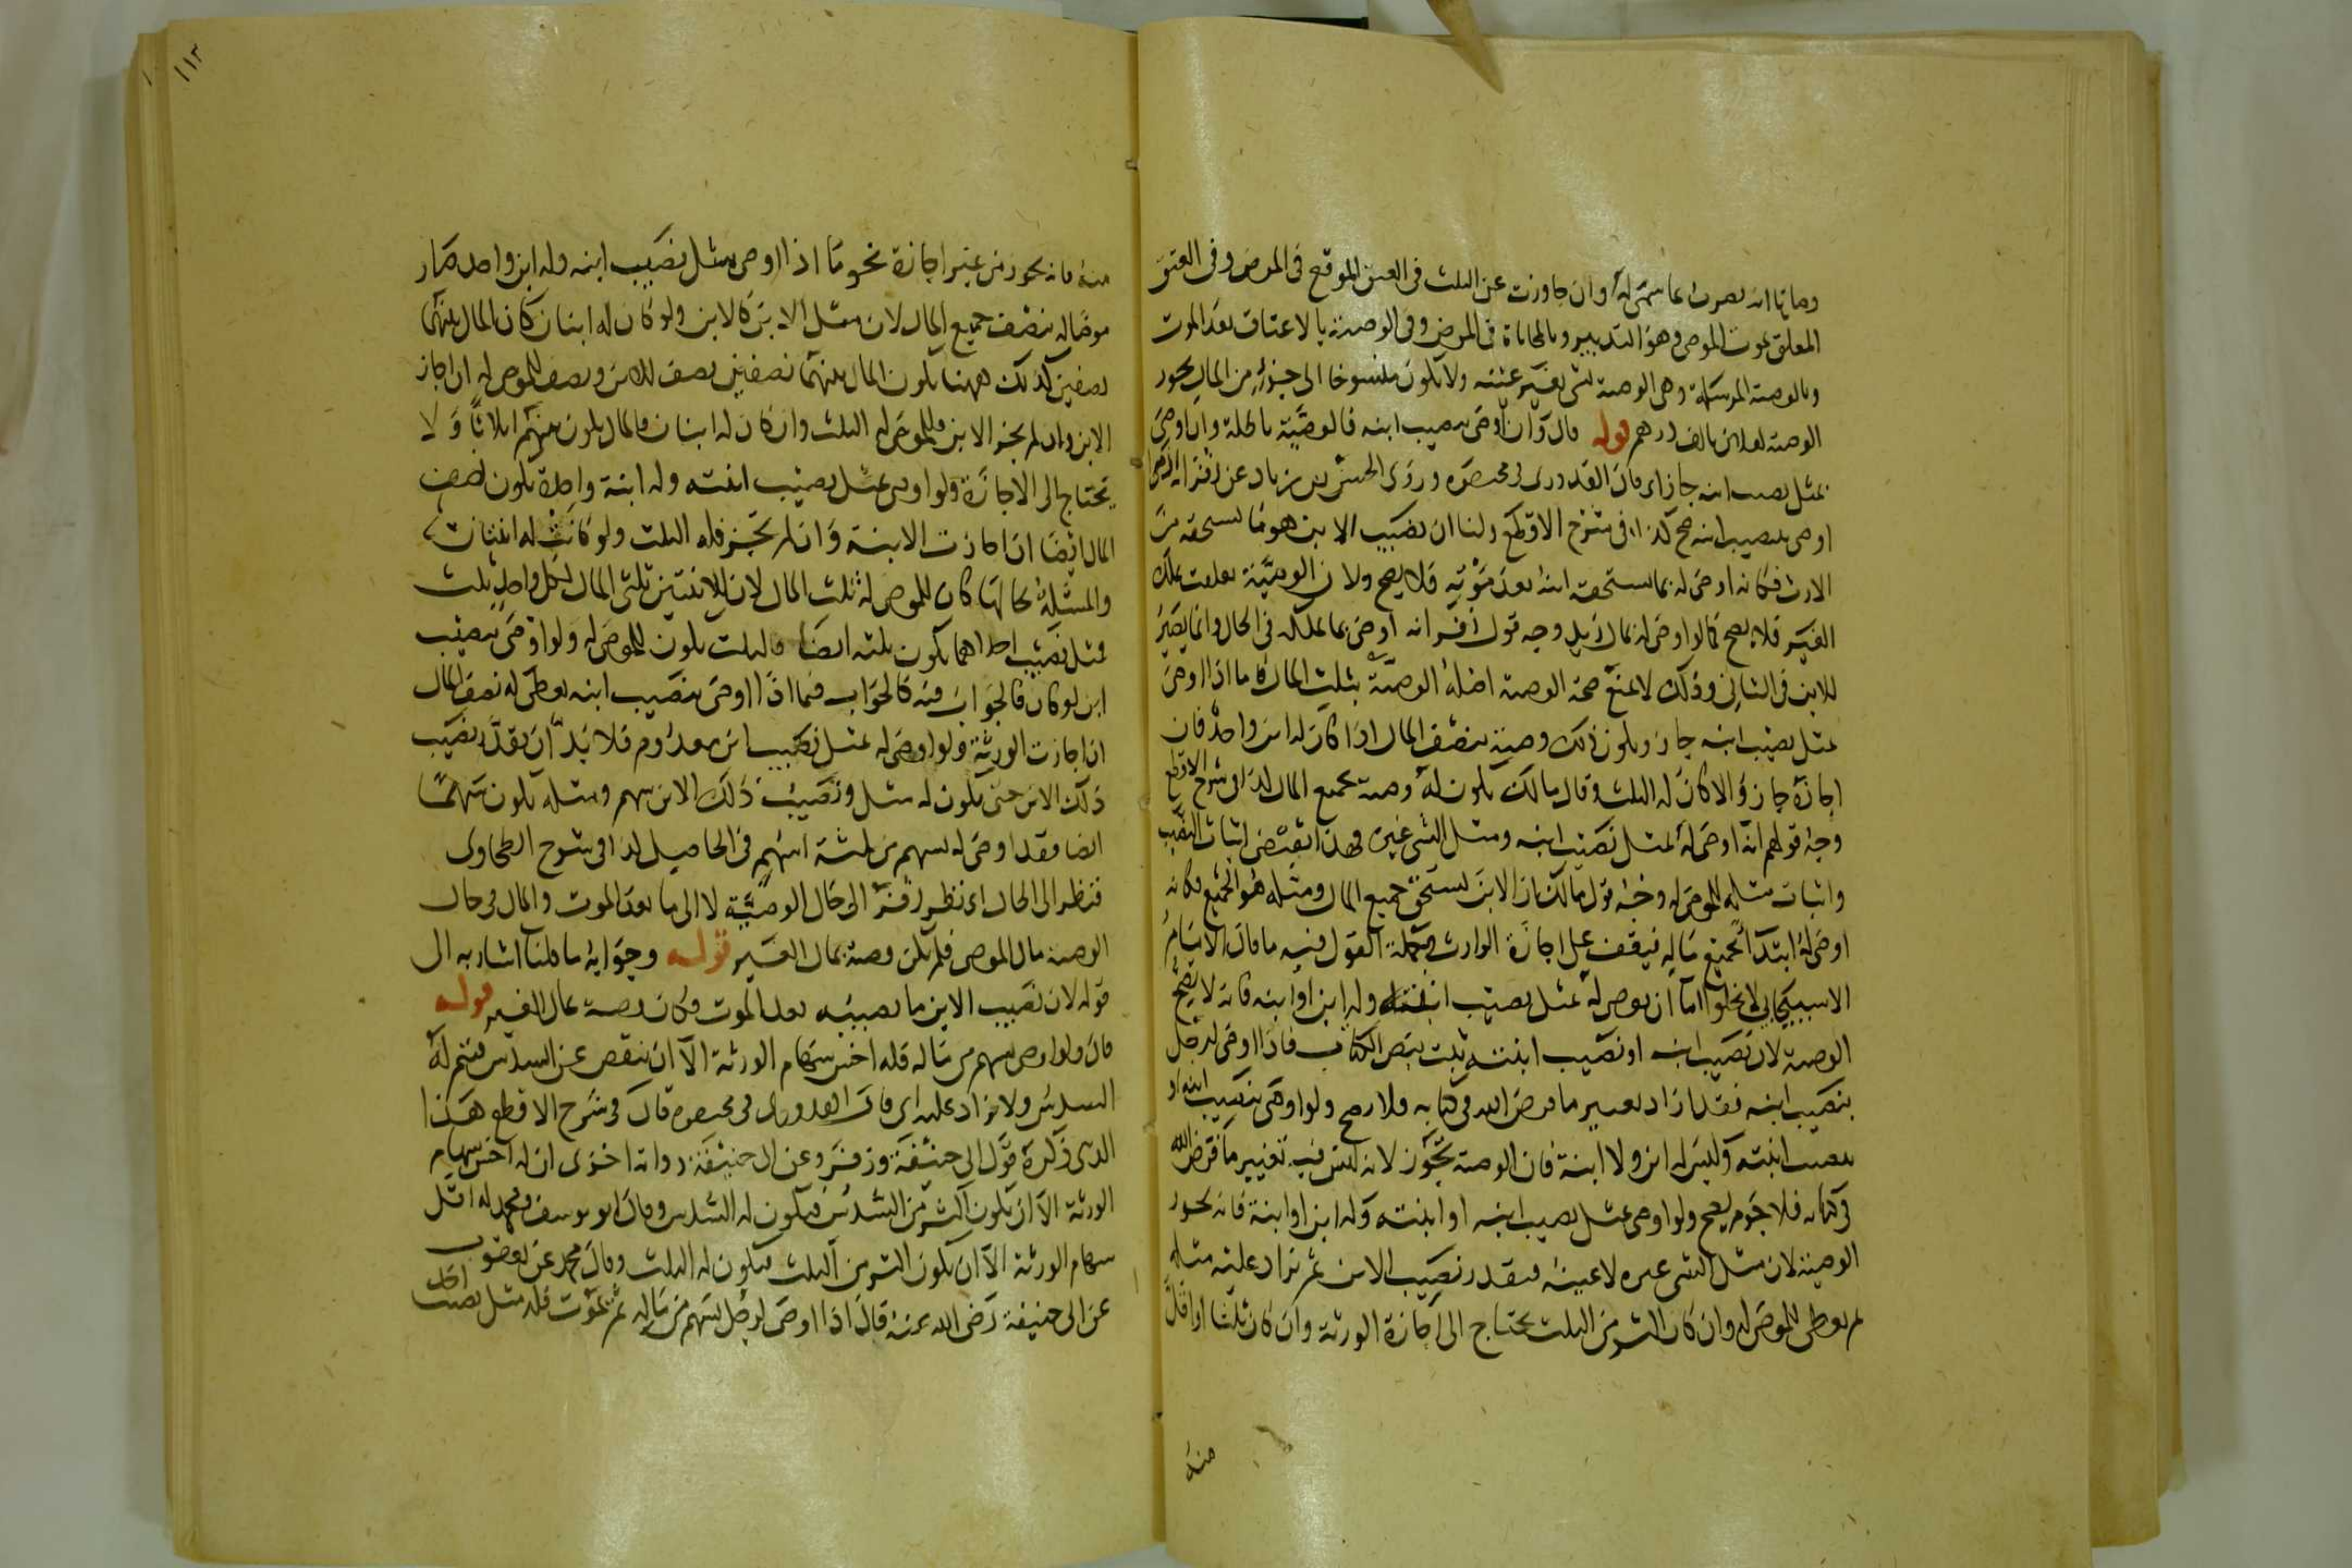 وصاياه انه يضرب بما سمى له وان جاوزت عن الثلث فى العتق الموقع فى المرض وفى العتق
المعلق بموت الموصى وهو التدبير وبالمحاباة فى المرض وفى الوصية بالاعتاق بعد الموت
وبالوصية المرسلة وهى الوصية بشى بغير عينه ولا يكون منسوخا الى جزء من المال نحو
الوصية لفلان بالف درهم قوله قال وان اوصى بنصيب ابنه فالوصية باطلة وان اوصى
بمثل نصيب ابنه جاز اى قال القدورى فى مختصره وروى الحسن بن زياد عن زفر انه اذا
اوصى بنصيب ابنه صح كذا فى شرح الاقطع ولنا ان نصيب الابن هو ما يستحقه من
الارث فكانه اوصى له بما يستحقه ابنه بعد موته فلا يصح ولان الوصية تعلقت بملك
الغير فلا يصح كما لو اوصى له بمال زيد وجه قول زفر انه اوصى بما يملكه فى الحال وانما يصير
للابن فى الثانى وذلك لا يمنع صحة الوصية اصله الوصية بثلث المال فاما اذا اوصى
بمثل نصيب ابنه جاز ويكون ذلك وصية بنصف المال اذا كان له ابن واحد فان
اجازه جاز والا كان له الثلث وقال مالك يكون له وصية بجميع المال كذا فى شرح الاقطع
وجه قولهم انه اوصى له بمثل نصيب ابنه ومثل الشى غيره وهذا يقتضى اثبات النصيب
واثبات مثله للموصى له وجه قول مالك ان الابن يستحق جميع المال ومثله هو الجميع فكانه
اوصى له ابتدآ بجميع ماله فيقف على اجازة الوارث وجملة القول فيه ما قال الامام
الاسبيجابى لا يخلوا اما ان يوصى له بمثل نصيب ابنته وله ابن او ابنه فانه لا يصح
الوصية لان نصيب ابنه او نصيب ابنته ثبت بنص الكتاب فاذا اوصى لرجل
بنصيب ابنه فقد اراد تغيير ما فرض الله فى كتابه فلا يصح ولو اوصى بنصيب ابنه او
بنصيب ابنته وليس له ابن ولا ابنة فان الوصية تجوز لانه ليس فيه تغيير ما فرض الله
فى كتابه فلا جرم يصح ولو اوصى بمثل نصيب ابنه او ابنته وله ابن او ابنة فانه يجوز
الوصية لان مثل الشى غيره لا عينه فيقدر نصيب الابن ثم يزاد عليه مثله
ثم يعطى للموصى له وان كان اكثر من الثلث يحتاج الى اجازة الورثة وان كان ثلثا او اقل
منه
١١٣
منه فانه يجوز من غير اجازة نحو ما اذا اوصى بمثل نصيب ابنه وله ابن واحد صار
موصا له بنصف جميع المال لان مثل الابن كالابن ولو كان له ابنان كان المال بينهما
نصفين كذلك ههنا يكون المال بينهما نصفين نصف للابن ونصف للموصى له ان اجاز
الابن وان لم يجز الابن فللموصى له الثلث وان كان له ابنان فالمال يكون بينهم اثلاثا ولا
يحتاج الى الاجازة ولو اوصى بمثل نصيب ابنته وله ابنة واحدة يكون له نصف
المال ايضا ان اجازت الابنة وان لم تجز فله الثلث ولو كانت له ابنتان
والمسئلة بحالها كان للموصى له ثلث المال لان للابنتين ثلثى المال لكل واحد ثلث
فمثل نصيب احداهما يكون ثلثه ايضا فالثلث يكون للموصى له ولو اوصى بنصيب
ابن لو كان فالجواب فيه كالجواب فيما اذا اوصى بنصيب ابنه يعطى له نصف المال
ان اجازت الورثة ولو اوصى له بمثل نصيب ابن معدوم فلا بد ان يقدر نصيب
ذلك الابن حتى يكون له مثل ونصيب ذلك الابن سهم ومثله يكون سهما
ايضا فقد اوصى له بسهم من ثلثة اسهم فى الحاصل كذا فى شرح الطحاوى
فنظر الى الحال اى نظر زفر الى حال الوصية لا الى ما بعد الموت والمال فى حال
الوصية مال الموصى فلم يكن وصية بمال الغير قوله وجوابه ما قلنا اشار به الى
قوله لان نصيب الابن ما يصيبه بعد الموت فكان وصية بمال الغير قوله
قال ولو اوصى بسهم من ماله فله اخس سهام الورثة الا ان ينقص عن السدس فيتم له
السدس ولا يزاد عليه اى قال القدورى فى مختصره قال فى شرح الاقطع هذا
الذى ذكره قول ابى حنيفة وزفر وعن ابى حنيفة رواية اخرى ان له اخس سهام
الورثة الا ان يكون اكثر من السدس فيكون له السدس وقال ابو يوسف ومحمد له اقل
سهام الورثة الا ان يكون اكثر من الثلث فيكون له الثلث وقال محمد عن يعقوب
عن ابى حنيفة رضى الله عنه قال اذا اوصى لرجل بسهم من ماله ثم يموت فله مثل نصيب احد